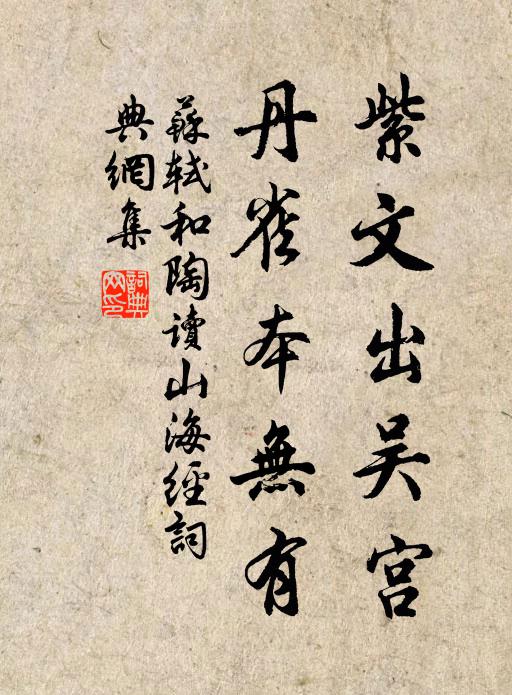 紫文出吴宫
丹雀本無有
蘇軾和陶讀山海經詞
典網集
詞典
网印